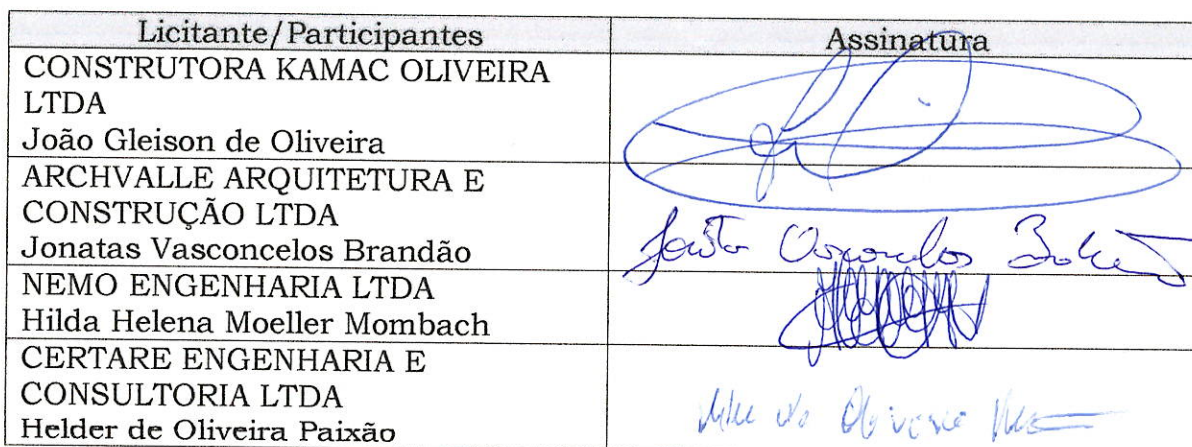 Licitante/Participantes Assinatura
CONSTRUTORA KAMAC OLIVEIRA
LTDA
João Gleison de Oliveira
ARCHVALLE ARQUITETURA E
CONSTRUÇÃO LTDA
Jonatas Vasconcelos Brandão
NEMO ENGENHARIA LTDA
Hilda Helena Moeller Mombach
CERTARE ENGENHARIA E
CONSULTORIA LTDA
Helder de Oliveira Paixão